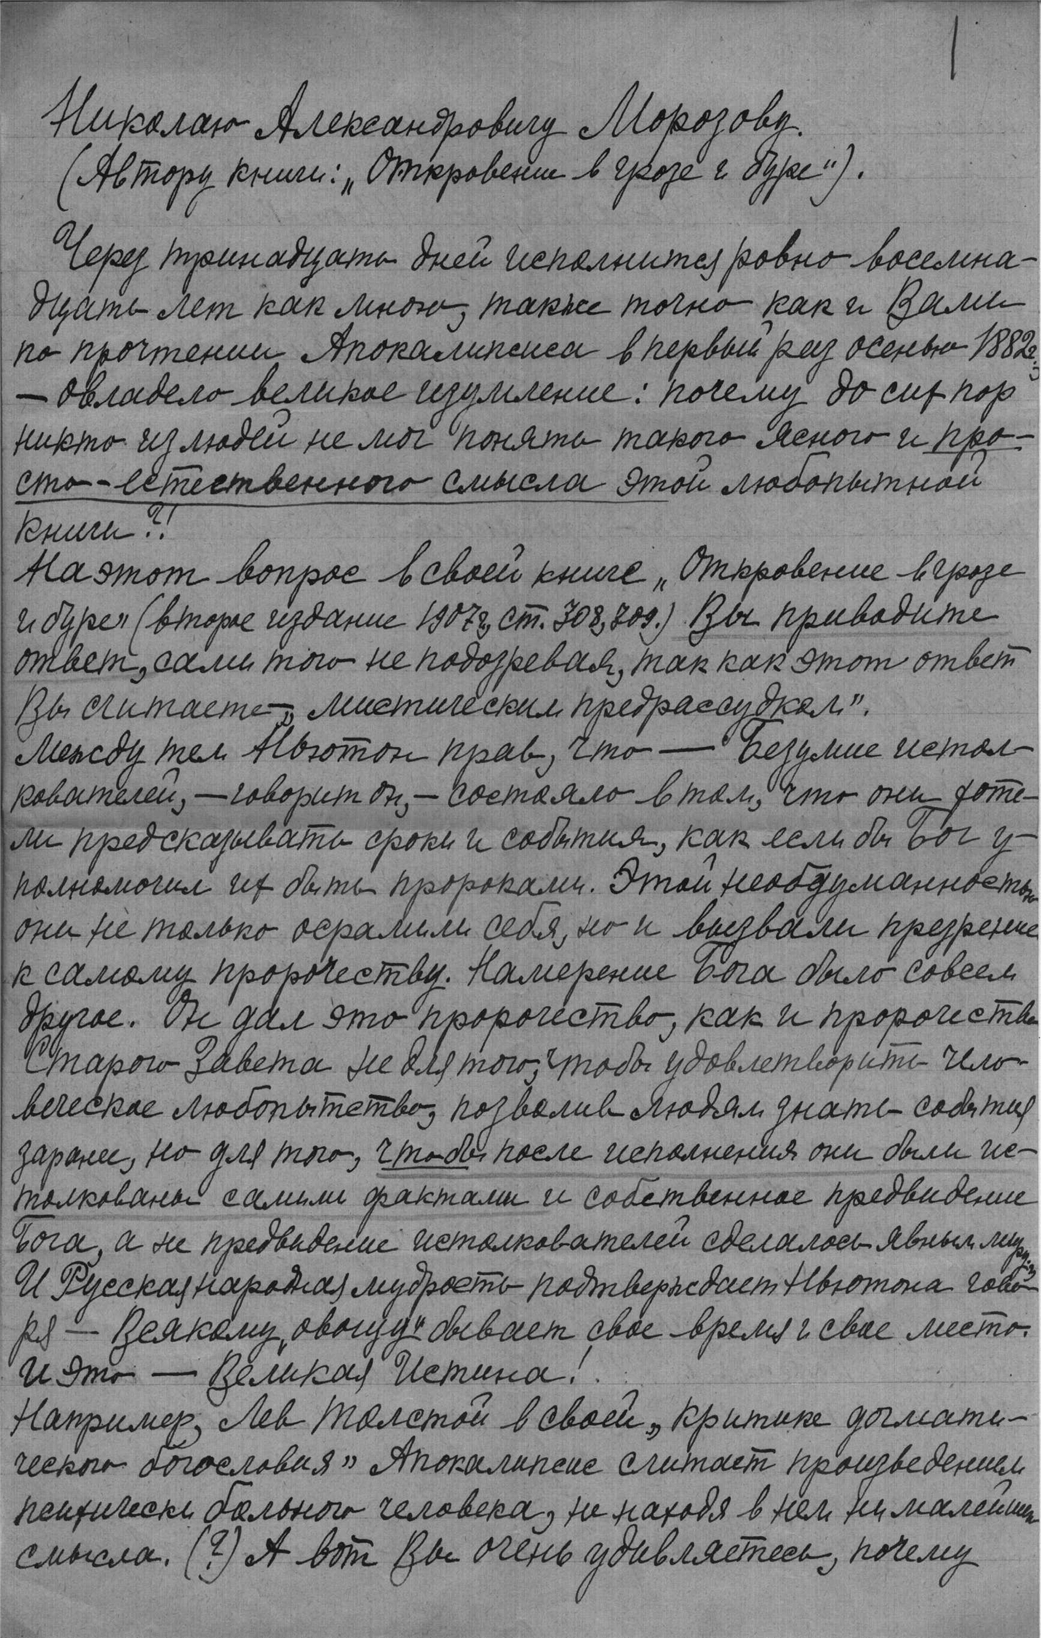 1
Николаю Александровичу Морозову.
(Автору книги: „Откровение в грозе и буре").
Через тринадцать дней исполнится ровно восемна-
дцать лет как мною, также точно как и Вами
по прочтении Апокалипсиса в первый раз осенью 1882г.,
— овладело великое изумление: почему до сих пор
никто из людей не мог понять такого ясного и про-
сто-естественного смысла этой любопытной
книги?!
На этот вопрос в своей книге „Откровение в грозе
и буре" (второе издание 1907г, ст. 308, 309.) Вы приводите
ответ, сами того не подозревая, так как этот ответ
Вы считаете „мистическим предрассудком".
Между тем Ньютон прав, что — Безумие истол-
кователей, — говорит он, — состояло в том, что они хоте-
ли предсказывать сроки и события, как если бы Бог у-
полномочил их быть пророками. Этой необдуманностью
они не только осрамили себя, но и вызвали презрение
к самому пророчеству. Намерение Бога было совсем
другое. Он дал это пророчество, как и пророчества
Старого Завета не для того, чтобы удовлетворить чело-
веческое любопытство, позволив людям знать события
заранее, но для того, чтобы после исполнения они были ис-
толкованы самими фактами и собственное предвидение
Бога, а не предвидение истолкователей сделалось явным миру.
И Русская народная мудрость подтверждает Ньютона гово-
ря — Всякому „овощу" бывает свое время и свое место.
И это — Великая Истина!
Например, Лев Толстой в своей „критике догмати-
ческого богословия" Апокалипсис считает произведением
психически больного человека, не находя в нем ни малейшего
смысла. (?) А вот Вы очень удивляетесь, почему